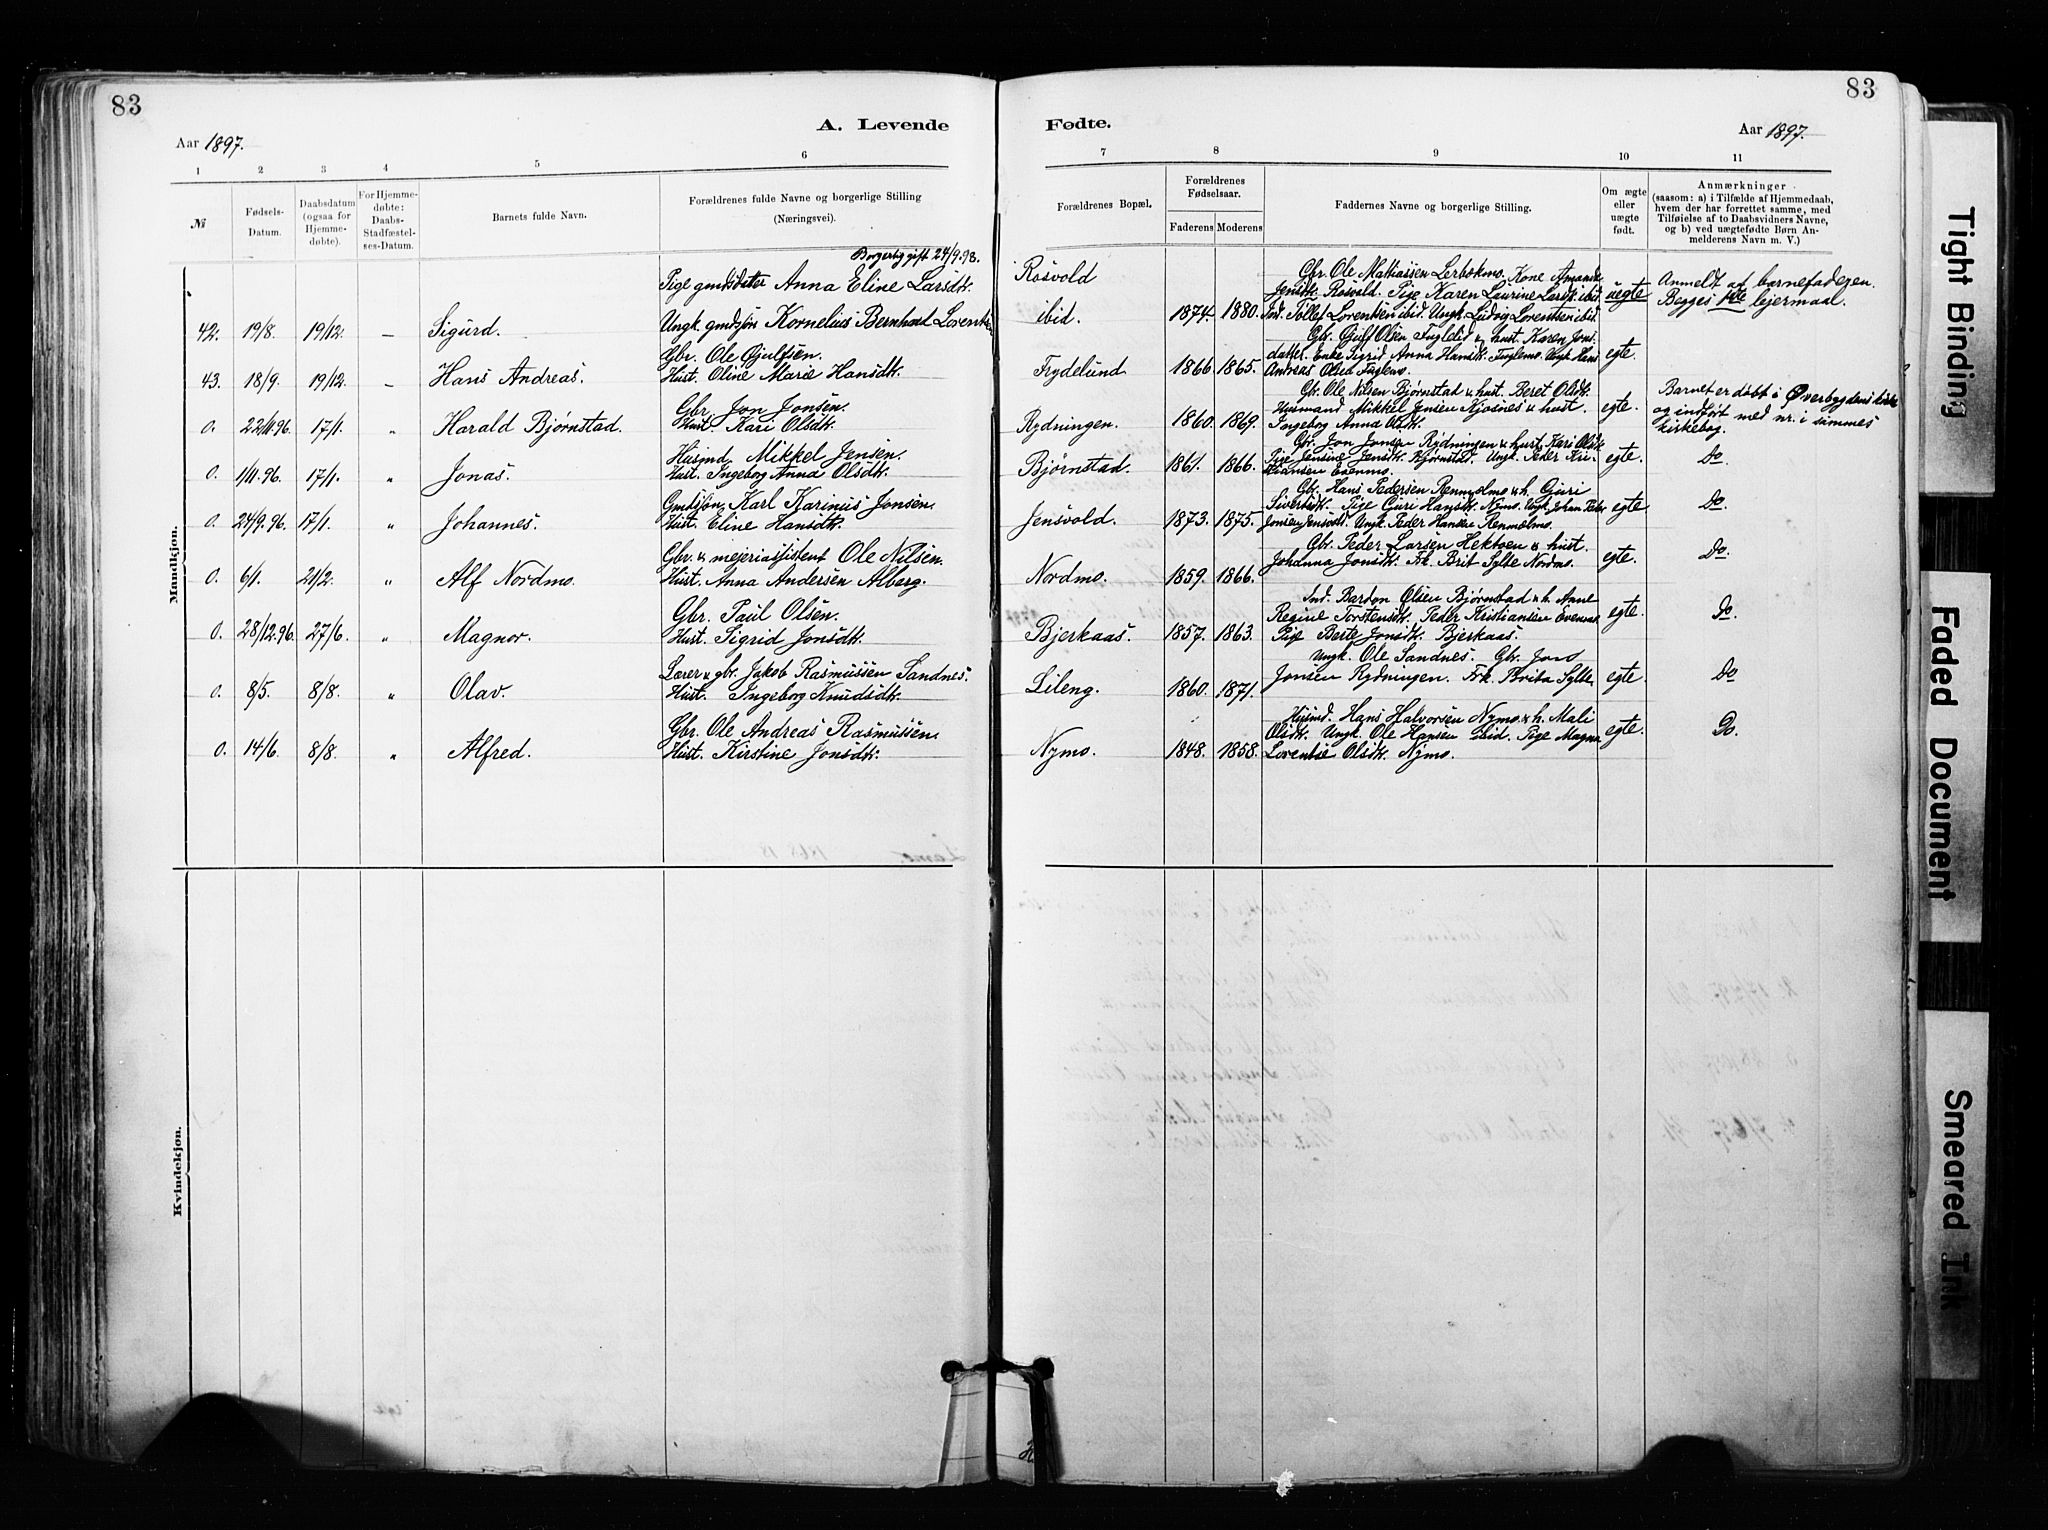 83
83
A. Levende Fødte.
Aar 1897.
Aar 1897.
1 2 3 4 5 6 7 8 9 10 11
№
Fødsels-
Datum.
Daabsdatum
(ogsaa for
Hjemme-
døbte).
For Hjemme-
døbte:
Daabs-
Stadfæstel-
ses-Datum.
Barnets fulde Navn.
Forældrenes fulde Navne og borgerlige Stilling
(Næringsvei).
Forældrenes Bopæl.
Forældrenes
Fødselsaar.
Faderens Moderens
Faddernes Navne og borgerlige Stilling.
Om ægte
eller
uægte
født.
Anmærkninger
(saasom: a) i Tilfælde af Hjemmedaab,
hvem der har forrettet samme, med
Tilføielse af to Daabsvidners Navne,
og b) ved uægtefødte Børn An-
melderens Navn m. V.)
Mandkjøn.
Borgerlig gift 24/9.98.
Pige gmdsdatter Anna Eline Larsdtr. Rosvold
42. 19/8. 19/12. — Sigurd. Ungk. gmdsjøn Kornelius Bernhard Lorentsen ibid. 1874. 1880.
Gbr. Ole Mathiassen Lerbækmo. Kone Amanda
Jensdtr. Rosvold. Pige Karen Laurine Larsdtr. ibid
Ind. Tollef Lorentsen ibid. Ungk. Ludvig Lorentsen ibid
uegte
Anmeldt af barnefaderen.
Begges 1ste lejermaal.
Gbr. Ole Gjulfsen.
43. 18/9. 19/12. — Hans Andreas. Hust. Oline Marie Hansdtr. Frydelund 1866 1865.
Gbr. Gjulf Olsen Fuglelid & hust. Karen Jons-
datter. Enke Sigrid Anna Hansdtr. Fuglemo. Ungk. Hans
Andreas Olsen Fuglemo.
egte.
Gbr. Jon Jonsen.
0. 22/11.96. 17/1. " Harald Bjørnstad. Hust. Kari Olsdtr. Rydningen. 1860. 1869.
Gbr. Ole Nilsen Bjørnstad & hust. Beret Olsdtr.
Husmand Mikkel Jensen Kjosnes & hust.
Ingeborg Anna Olsdtr.
egte.
Barnet er døbt i Øverbygdens kirke
og indført med nr. i sammes
kirkebog.
Husmd Mikkel Jensen.
0. 1/11.96. 17/1. " Jonas. Hust. Ingeborg Anna Olsdtr. Bjørnstad. 1861. 1866.
Gbr. Jon Jonsen Rydningen & hust. Kari Olsdtr
Pige Jensine Jensdtr. Bjørnstad. Ungk. Peder Kri-
stiansen Evenmo.
egte. Do.
Gmdsjøn Karl Karinus Jonsen.
0. 24/9.96. 17/1. " Johannes. Hust. Eline Hansdtr. Jensvold. 1873. 1875.
Gbr. Hans Pedersen Rennelmo & h. Guri
Sivertsdtr. Pige Guri Hansdtr. Nymo. Ungk. Johan Peter
Jonsen Jensvold. Ungk. Peder Hansen Rennelmo.
egte Do.
Gbr. & mejeriassistent Ole Nilsen.
0. 6/1. 21/2. " Alf Nordmo. Hust. Anna Andersen Alberg. Nordmo. 1859. 1866.
Gbr. Peder Larsen Hektoen & hust.
Johanna Jonsdtr. Frk. Brit Sylte Nordmo.
egte. Do.
Gbr. Paul Olsen.
0. 28/12.96. 27/6. " Magnor. Hust. Sigrid Jonsdtr. Bjerkaas. 1857. 1863.
Ind. Bardon Olsen Bjørnstad & h. Anne
Regine Torstensdtr. Peder Kristiansen Evenmo
Pige Berte Jonsdtr. Bjerkaas.
egte. Do.
Lærer & gbr. Jakob Rasmussen Sandnes.
0. 8/5. 8/8. " Olav. Hust. Ingeborg Knudsdtr. Lileng. 1860. 1871.
Ungk. Ole Sandnes. Gbr. Jon
Jonsen Rydningen. Frk. Brita Sylte
egte. Do
Gbr. Ole Andreas Rasmussen.
0. 14/6. 8/8. " Alfred. Hust. Kirstine Jonsdtr. Nymo. 1848. 1858.
Husmd. Hans Halvorsen Nymo & h. Mali
Olsdtr. Ungk. Ole Hansen ibid. Pige Magna
Lorentse Olsdtr. Nymo.
egte. Do.
Kvindekjøn.
Tight Binding
Faded Document
Smeared Ink